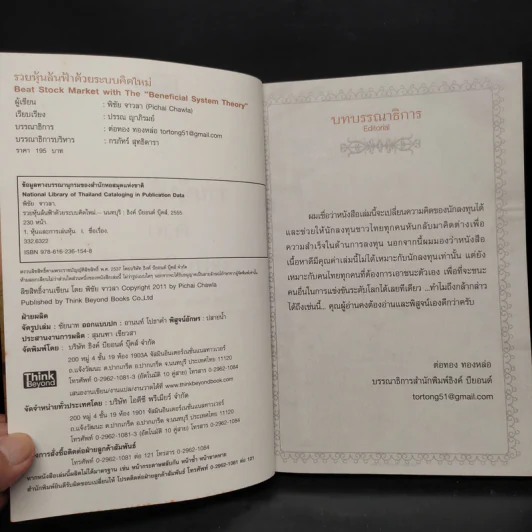 รวยหุ้นล้นฟ้าด้วยระบบคิดใหม่
Beat Stock Market with The "Beneficial System Theory"
ผู้เขียน : พิชัย จาวลา (Pichai Chawla)
เรียบเรียง : ปรรณ ญาภิรมย์
บรรณาธิการ : ต่อทอง ทองหล่อ tortong51@gmail.com
บรรณาธิการบริหาร : กรภัทร์ สุทธิดารา
ราคา 195 บาท
ข้อมูลทางบรรณานุกรมของสำนักหอสมุดแห่งชาติ
National Library of Thailand Cataloging in Publication Data
พิชัย จาวลา.
รวยหุ้นล้นฟ้าด้วยระบบคิดใหม่.-- นนทบุรี : ธิงค์ บียอนด์ บุ๊คส์, 2555
230 หน้า.
1. หุ้นและการเล่นหุ้น. I. ชื่อเรื่อง.
332.6322
ISBN 978-616-236-154-8
ลิขสิทธิ์งานเขียน โดย พิชัย จาวลา Copyright 2011 by Pichai Chawla
Published by Think Beyond Books Co.,Ltd
ฝ่ายผลิต
จัดรูปเล่ม : ชัยนาท ออกแบบปก : อานนท์ โปชาดำ พิสูจน์อักษร : ปลายน้ำ
ประสานงานการผลิต : สุมนทา เชียวสา
จัดพิมพ์โดย : บริษัท ธิงค์ บียอนด์ บุ๊คส์ จำกัด
200 หมู่ 4 ชั้น 19 ห้อง 1903A จัสมินอินเตอร์เนชั่นแนลทาวเวอร์
ถ.แจ้งวัฒนะ ต.ปากเกร็ด อ.ปากเกร็ด จ.นนทบุรี ประเทศไทย 11120
โทรศัพท์ 0-2962-1081 (อัตโนมัติ 10 คู่สาย) โทรสาร 0-2962-1084
Think
Beyond
เสนองานเขียน/งานแปล/งานวาดได้ที่ www.thinkbeyondbook.com
จัดจำหน่ายทั่วประเทศโดย : บริษัท ไอดีซี พรีเมียร์ จำกัด
200 หมู่ 4 ชั้น 19 ห้อง 1901 จัสมินอินเตอร์เนชั่นแนลทาวเวอร์
ถ.แจ้งวัฒนะ ต.ปากเกร็ด อ.ปากเกร็ด จ.นนทบุรี ประเทศไทย 11120
โทรศัพท์ 0-2962-1081-3 (อัตโนมัติ 10 คู่สาย) โทรสาร 0-2962-1084
การสั่งซื้อติดต่อฝ่ายลูกค้าสัมพันธ์
โทรศัพท์ 0-2962-1081 ต่อ 121 โทรสาร 0-2962-1084
บทบรรณาธิการ
Editorial
ผมเชื่อว่าหนังสือเล่มนี้จะเปลี่ยนความคิดของนักลงทุนได้
และช่วยให้นักลงทุนชาวไทยทุกคนหันกลับมาคิดต่างเพื่อ
ความสำเร็จในด้านการลงทุน นอกจากนี้ผมมองว่าหนังสือ
เนื้อหาดีมีคุณค่าเล่มนี้ไม่ได้เหมาะกับนักลงทุนเท่านั้น แต่ยัง
เหมาะกับคนไทยทุกคนที่ต้องการเอาชนะตัวเอง เพื่อที่จะชนะ
คนอื่นในการแข่งขันระดับโลกได้เลยทีเดียว ...ทำไมถึงกล้ากล่าว
ได้ถึงเช่นนี้.. คุณผู้อ่านคงต้องอ่านและพิสูจน์เองดีกว่าครับ
ต่อทอง ทองหล่อ
บรรณาธิการสำนักพิมพ์ธิงค์ บียอนด์
tortong51@gmail.com